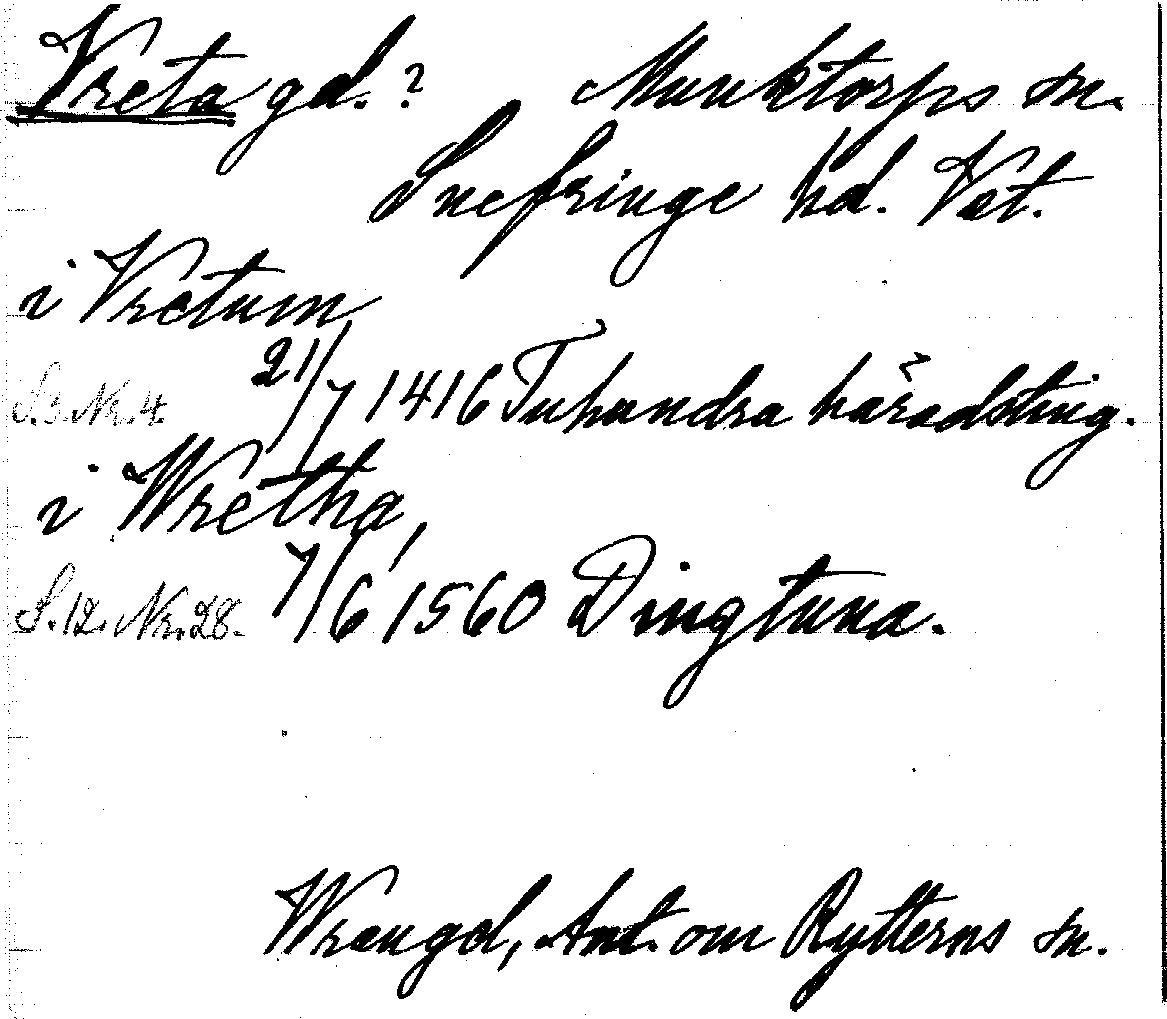 Vreta gd.? Munktorps sn.
Snefringe hd. Vst.
i Vretum
S. 3. Nr. 4. 21/7 1416 Tuhundra häradsting.
i Wretha,
S. 12. Nr. 28. 7/6 1560 Dingtuna.
Wrangel, Ant. om Rytterns sn.